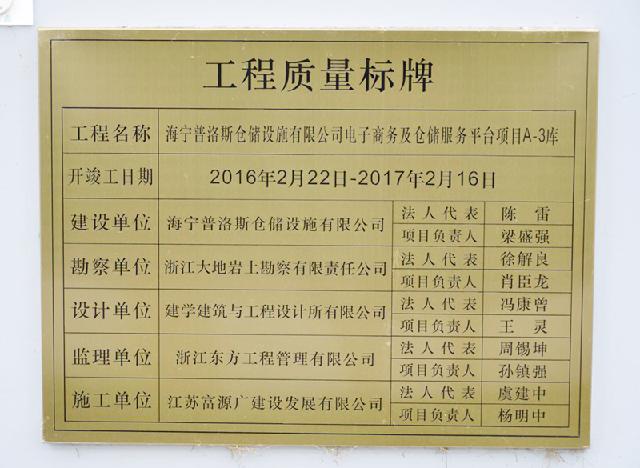 工程质量标牌
工程名称 海宁普洛斯仓储设施有限公司电子商务及仓储服务平台项目A-3库
开竣工日期 2016年2月22日-2017年2月16日
建设单位 海宁普洛斯仓储设施有限公司 法人代表 陈雷
项目负责人 梁盛强
勘察单位 浙江大地岩土勘察有限责任公司 法人代表 徐解良
项目负责人 肖臣龙
设计单位 建学建筑与工程设计所有限公司 法人代表 冯康曾
项目负责人 王灵
监理单位 浙江东方工程管理有限公司 法人代表 周锡坤
项目负责人 孙镇强
施工单位 江苏富源广建设发展有限公司 法人代表 虞建中
项目负责人 杨明中